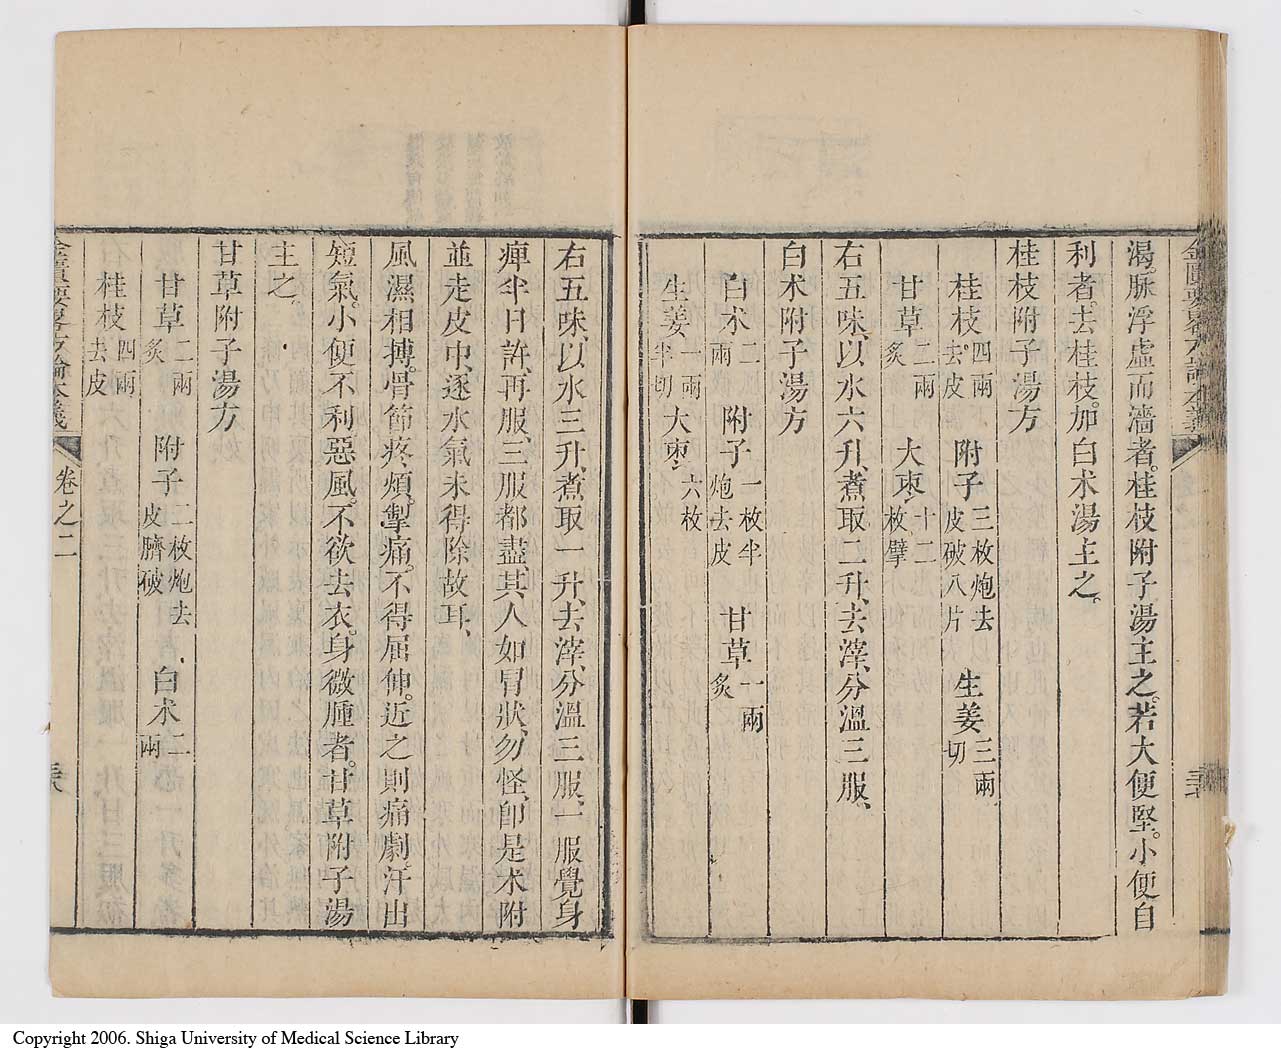 金匱要畧方論本義
渴。脉浮虛而濇者。桂枝附子湯主之。若大便堅。小便自
利者。去桂枝加白术湯主之。
桂枝附子湯方
桂枝四兩去皮 附子三枚炮去皮破八片 生姜三兩切
甘草二兩炙 大棗十二枚擘
右五味、以水六升、煮取二升、去滓、分溫三服、
白术附子湯方
白术二兩 附子一枚半炮去皮 甘草一兩炙
生姜一兩半切 大棗六枚
右五味、以水三升、煮取一升、去滓、分溫三服、一服覺身
痺半日許、再服、三服都盡、其人如冒狀、勿怪、卽是术附
並走皮中、逐水氣未得除故耳、
風濕相搏。骨節疼煩。掣痛。不得屈伸。近之則痛劇。汗出
短氣。小便不利惡風。不欲去衣。身微腫者。甘草附子湯
主之。
甘草附子湯方
甘草二兩炙 附子二枚炮去皮臍破 白术二兩
桂枝四兩去皮
金匱要畧方論本義 卷之二